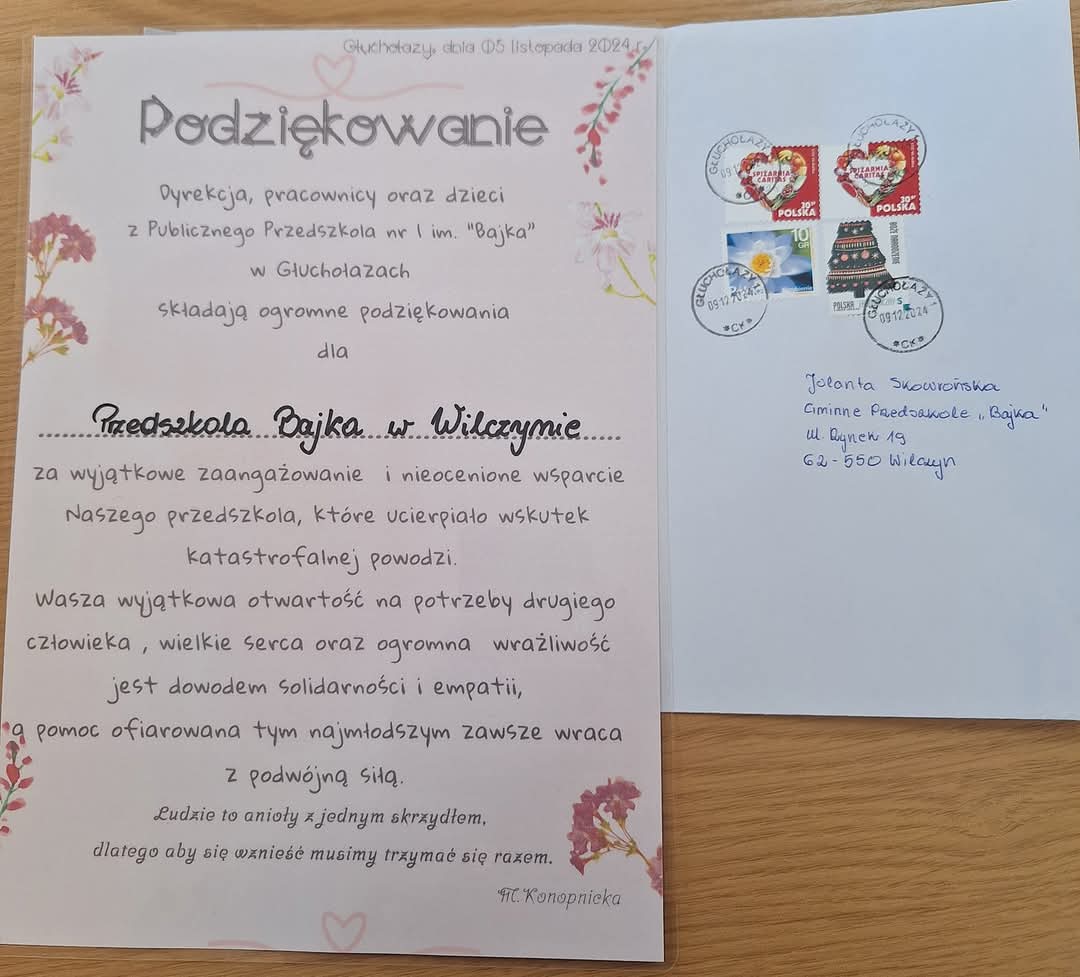 Głuchołazy, dnia 05 listopada 2024 r.
Podziękowanie
Dyrekcja, pracownicy oraz dzieci
z Publicznego Przedszkola nr 1 im. "Bajka"
w Głuchołazach
składają ogromne podziękowania
dla
Przedszkola Bajka w Wilczynie
za wyjątkowe zaangażowanie i nieocenione wsparcie
Naszego przedszkola, które ucierpiało wskutek
katastrofalnej powodzi.
Wasza wyjątkowa otwartość na potrzeby drugiego
człowieka , wielkie serca oraz ogromna wrażliwość
jest dowodem solidarności i empatii,
a pomoc ofiarowana tym najmłodszym zawsze wraca
z podwójną siłą.
Ludzie to anioły z jednym skrzydłem,
dlatego aby się wznieść musimy trzymać się razem.
M. Konopnicka
GŁUCHOŁAZY
09.12
GŁUCHOŁAZY
SPIŻARNIA
CARITAS
POLSKA
SPIŻARNIA
CARITAS
POLSKA
10
GR
BOŻE NARODZENIE
POLSKA
GŁUCHOŁAZY 1
09.12.2024
*CK*
GŁUCHOŁAZY 1
09.12.2024
*CK*
Jolanta Skowrońska
Gminne Przedszkole „Bajka"
ul. Rynek 19
62-550 Wilczyn